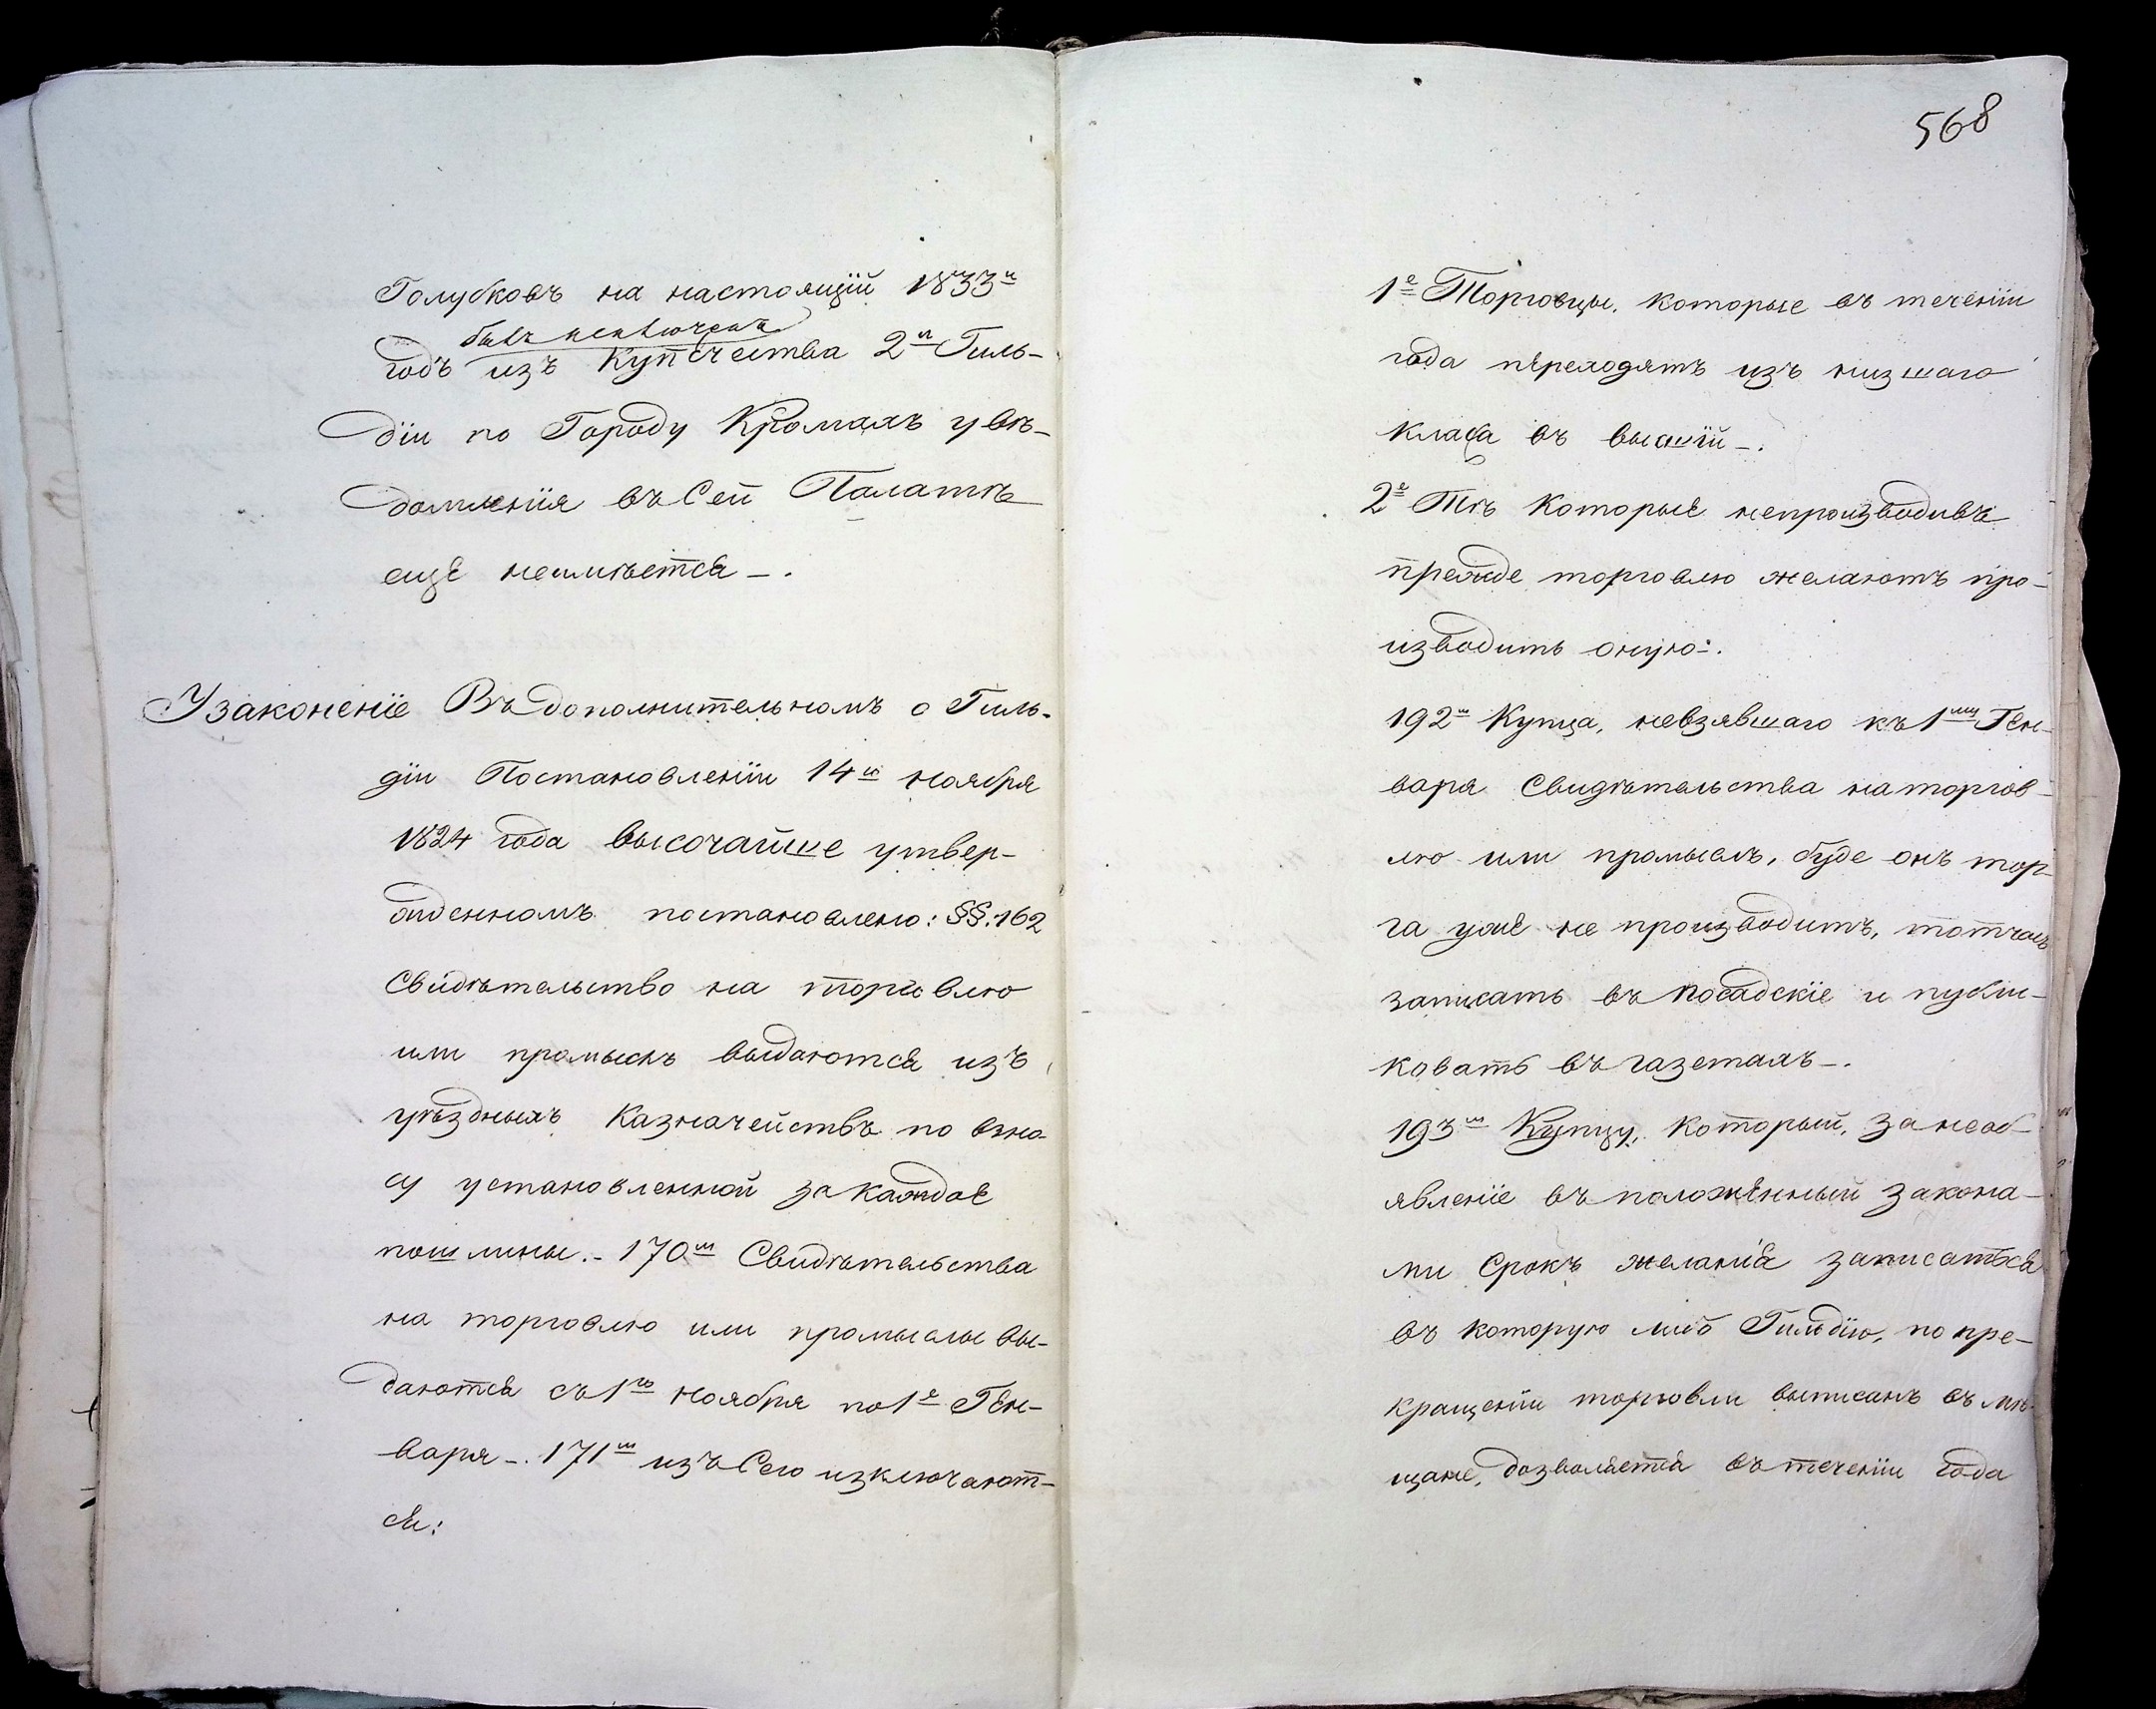 Голубковъ на настоящій 1833й
бывъ исключенъ
годъ изъ Купечества 2й Гиль-
діи по Городу Кромамъ увѣ-
домленія въ Сей Палатѣ
еще неимѣется -.
Узаконеніе Въ дополнительномъ о Гиль-
діи Постановленіи 14го ноября
1824 года высочайше утвер-
жденномъ постановлено: §§. 162
Свидѣтельство на торговлю
или промыслъ выдаются изъ
уѣздныхъ Казначействъ по взно-
су установленной за каждое
пошлины.- 170м Свидѣтельства
на торговлю или промыслы вы-
даются съ 1го ноября по 1е Ген-
варя -. 171м изъ Сего изключают-
ся:
568
1е Торговцы, которые въ теченіи
года переходятъ изъ низшаго
класа въ высшій -.
2е Тѣ которые непроизводивъ
прежде торговлю желаютъ про-
изводить оную -.
192м Купца, невзявшаго къ 1му Ген-
варя Свидѣтельства на торгов-
лю или промыслъ, буде онъ тор-
га уже не производитъ, тотчасъ
записать въ посадскіе и публи-
ковать въ газетахъ -.
193м Купцу, который, за необ-
явленіе въ положенный закона-
ми Срокъ желанія записаться
въ которую либо Гильдію, по пре-
кращеніи торговли выписанъ въ мѣ-
щане, дозволяется въ теченіи года